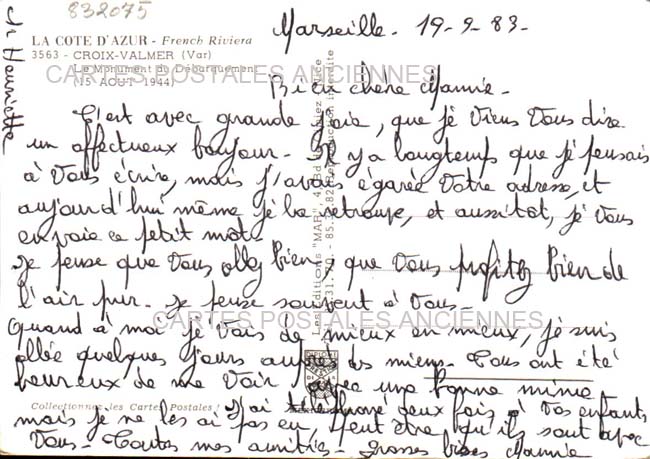 832075
LA COTE D'AZUR - French Riviera
3563 - CROIX-VALMER (Var)
Le Monument du Débarquement
(15 AOUT 1944)
Marseille - 19-9-83-
CARTES POSTALES ANCIENNES
Bien chère Mamie -
C'est avec grande joie, que je viens vous dire
un affectueux bonjour - Il y a longtemps que je pensais
à vous écrire, mais j'avais égarée votre adresse, et
aujourd'hui même je la retrouve, et aussitot, je vous
envoie ce petit mot -
Je pense que vous allez bien, que vous profitez bien de
l'air pur. Je pense souvent à vous -
Quand à moi je vais de mieux en mieux, je suis
CARTES POSTALES ANCIENNES
allée quelques jours auprès des miens - Tous ont été
heureux de me voir avec une bonne mine
Collectionnez les Cartes Postales
j'ai téléphoné deux fois à vos enfants
mais je ne les ai pas eu, peut être qu'ils sont avec
vous - Toutes mes amitiés - Grosses bises Mamie
Les Editions "MAR"